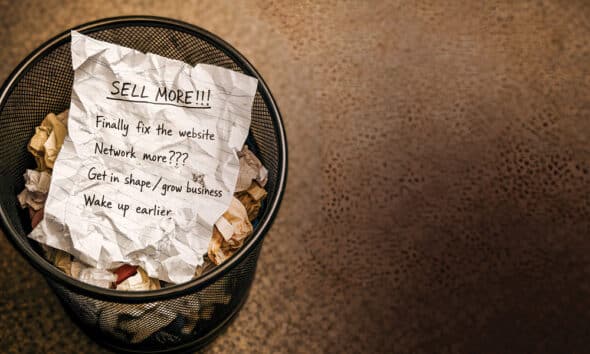 SELL MORE!!!
Finally fix the website
Network more???
Get in shape/grow business
Wake up earlier